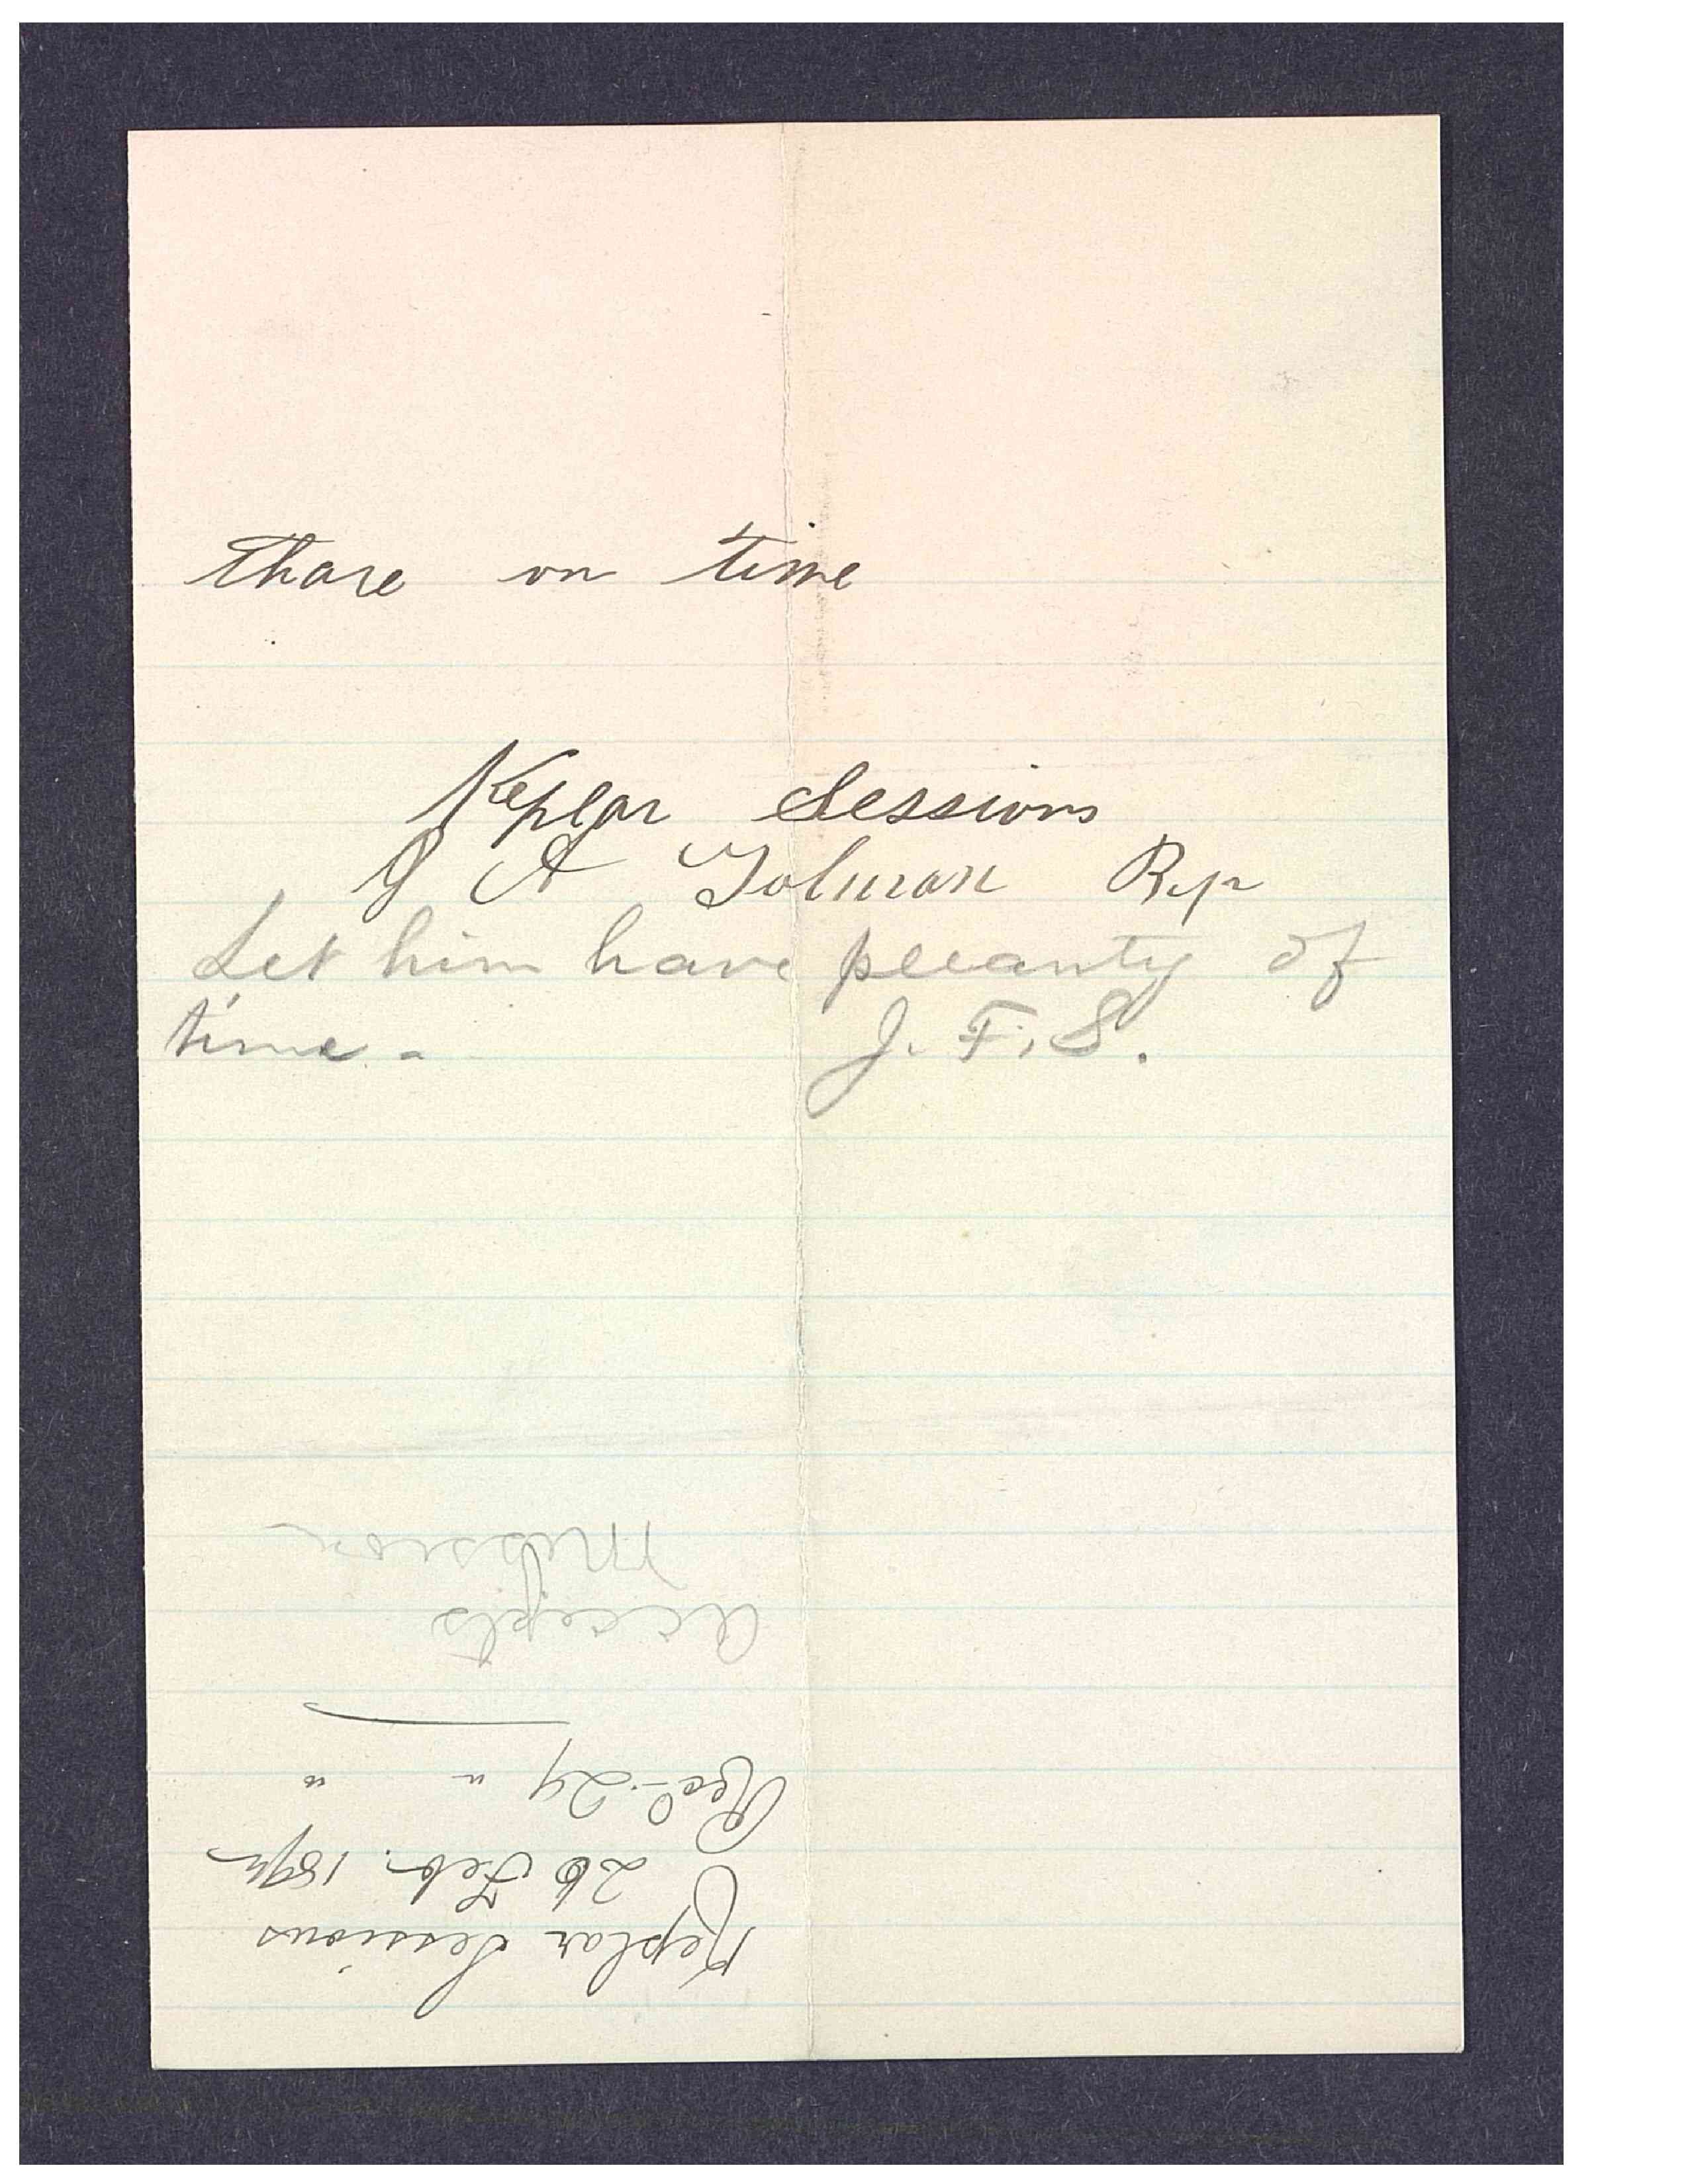 thare on time
Keplar Sessions
J A Tolman Bp
Let him have pleanty of
time - J. F. S.
Keplar Sessions
26 Feb. 1892
Recd 29 " "
Accepts
Mission